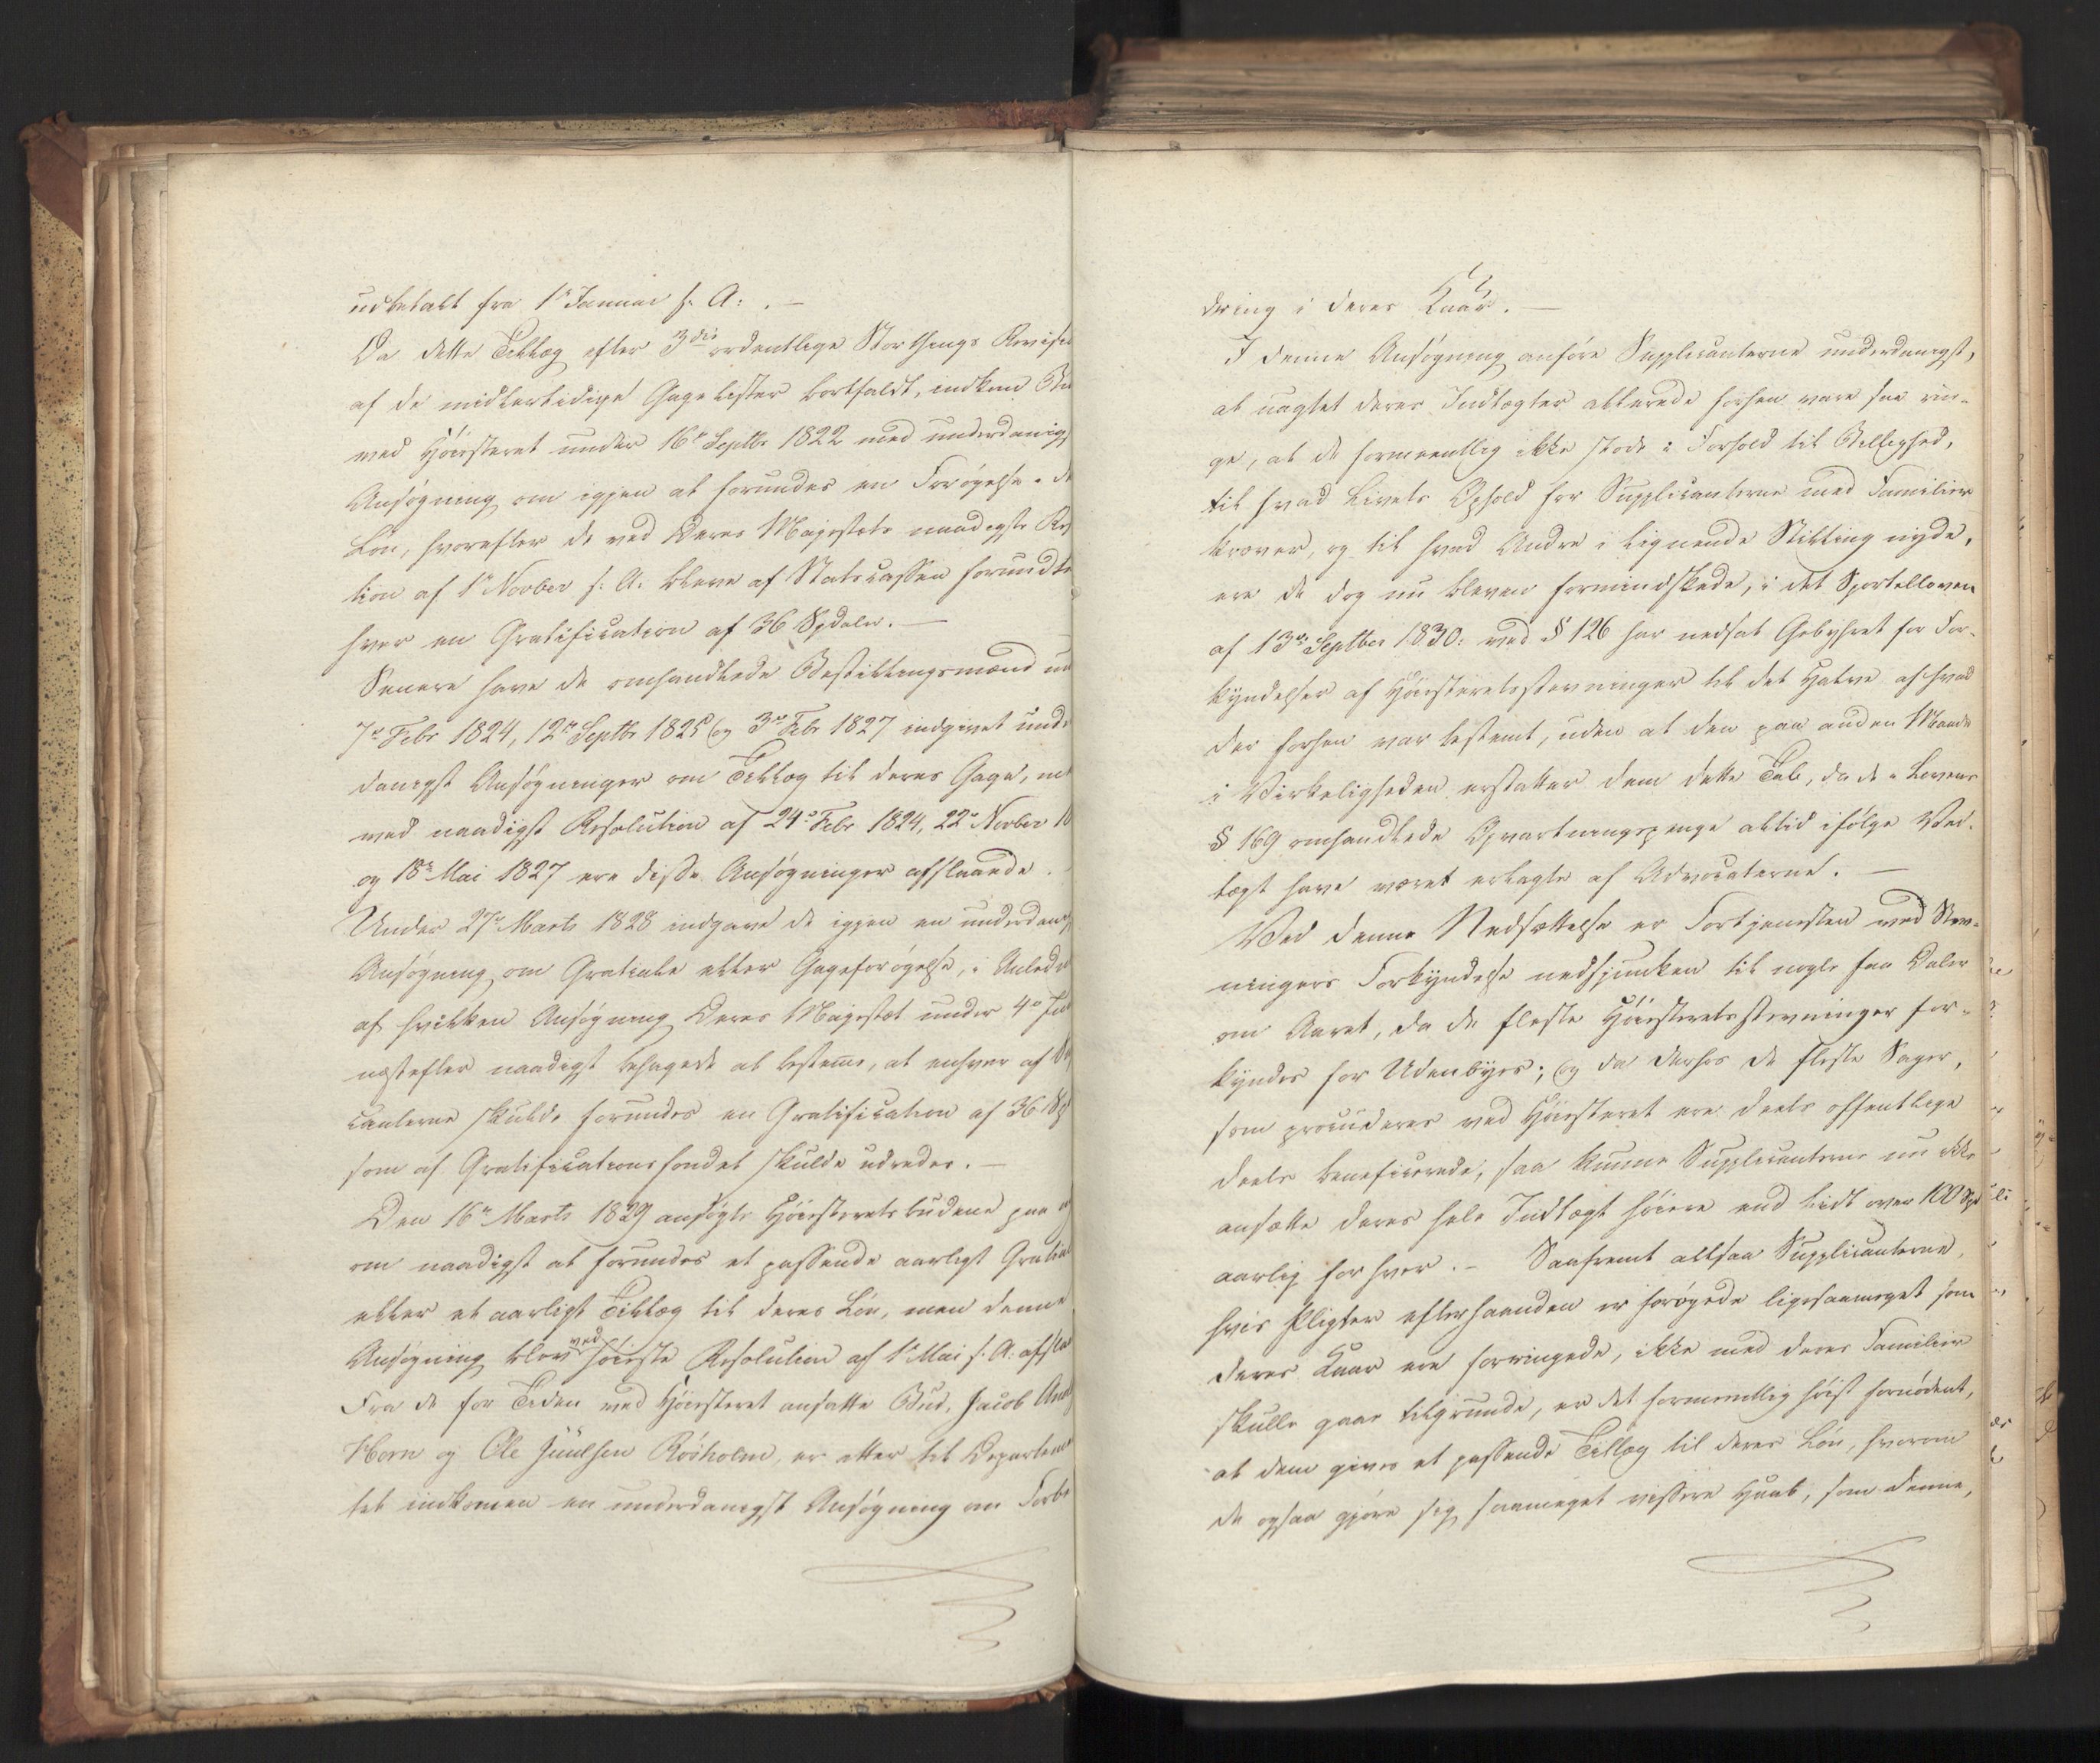 udbetalt fra 1ste Januar s: A: . —
Da dette Tillæg efter 3die ordentlige Storthings Revisi
af de midlertidige Gagelister bortfaldt, indkom Bu
med Höiesteret under 16de Septbr 1822 med underdanig
Ansøgning om igjen at forundes en Forøgelse i de
Løn, hvorefter de ved Deres Majestets naadigste Res
tion af 1ste Novber s: A: bleve af Statscassen forundte
hver en Gratification af 36 Spdaler. —
Senere have de omhandlede Bestillingsmænd un
7de Febr 1824, 12te Septbr 1825 og 3die Febr 1827 indgivet unde
danigst Ansøgninger om Tillæg til deres Gage, me
ved naadigst Resolution af 24de Febr 1824, 22de Novber 18
og 18de Mai 1827 ere disse Ansøgninger afslaaede.
Under 27de Marts 1828 indgave de igjen en underdan
Ansøgning om Gratiale eller Gageforøgelse, i Anledn
af hvilken Ansøgning Deres Majestæt under 4de Ju
næstefter naadigst behagede at bestemme, at enhver af Su
canterne skulde forundes en Gratification af 36 Sp
som af Gratificationsfondet skulde udredes. —
Den 16de Marts 1829 ansøgte Höiesteretsbudene paa n
om naadigst at forundes et passende aarligt Gratial
eller et aarligt Tillæg til deres Løn, men denne
Ansøgning blev ved höieste Resolution af 1ste Mai s: A: afsla
Fra de for Tiden ved Höiesteret ansatte Bud, Jacob And
Horn og Ole Juulsen Röiholm, er atter til Departem
tet indkommen en underdanigst Ansøgning om Forbe
dring i deres Kaar. —
I denne Ansøgning anføre Supplicanterne underdanigst,
at uagtet deres Indtægter allerede forhen vare saa rin-
ge, at de formeentlig ikke stode i Forhold til Billighed,
til hvad Livets Ophold for Supplicanterne med Familier
kræver, og til hvad Andre i lignende Stilling nyde,
ere de dog nu bleven formindskede, i det Sportelloven
af 13de Septber 1830: ved § 126 har nedsat Gebyhret for For-
kyndelser af Höiesteretsstevninger til det Halve af hvad
der forhen var bestemt, uden at den paa anden Maade
i Virkeligheden erstatter dem dette Tab, da de i Lovens
§ 169 omhandlede Opvartningspenge altid ifølge Ved-
tægt have været erlagte af Advocaterne. —
Ved denne Nedsættelse er Fortjenesten ved Stev-
ningers Forkyndelse nedsjunken til nogle faa Daler
om Aaret, da de fleste Höiesteretsstevninger for-
kyndes for Udenbyes; og da derhos de fleste Sager,
som procederes ved Höiesteret ere deels offentlige
deels beneficerede, saa kunne Supplicanterne nu ikke
ansætte deres hele Indtægt höiere end lidt over 100 Spd
aarlig for hver. — Saafremt altsaa Supplicanterne,
hvis Pligter efterhaanden er forøgede ligesaameget som
deres Kaar ere forringede, ikke med deres Familier
skulle gaae tilgrunde, er det formeentlig höist fornødent,
at dem gives et passende Tillæg til deres Løn, hvorom
de ogsaa gjøre sig saameget vissere Haab, som denne,